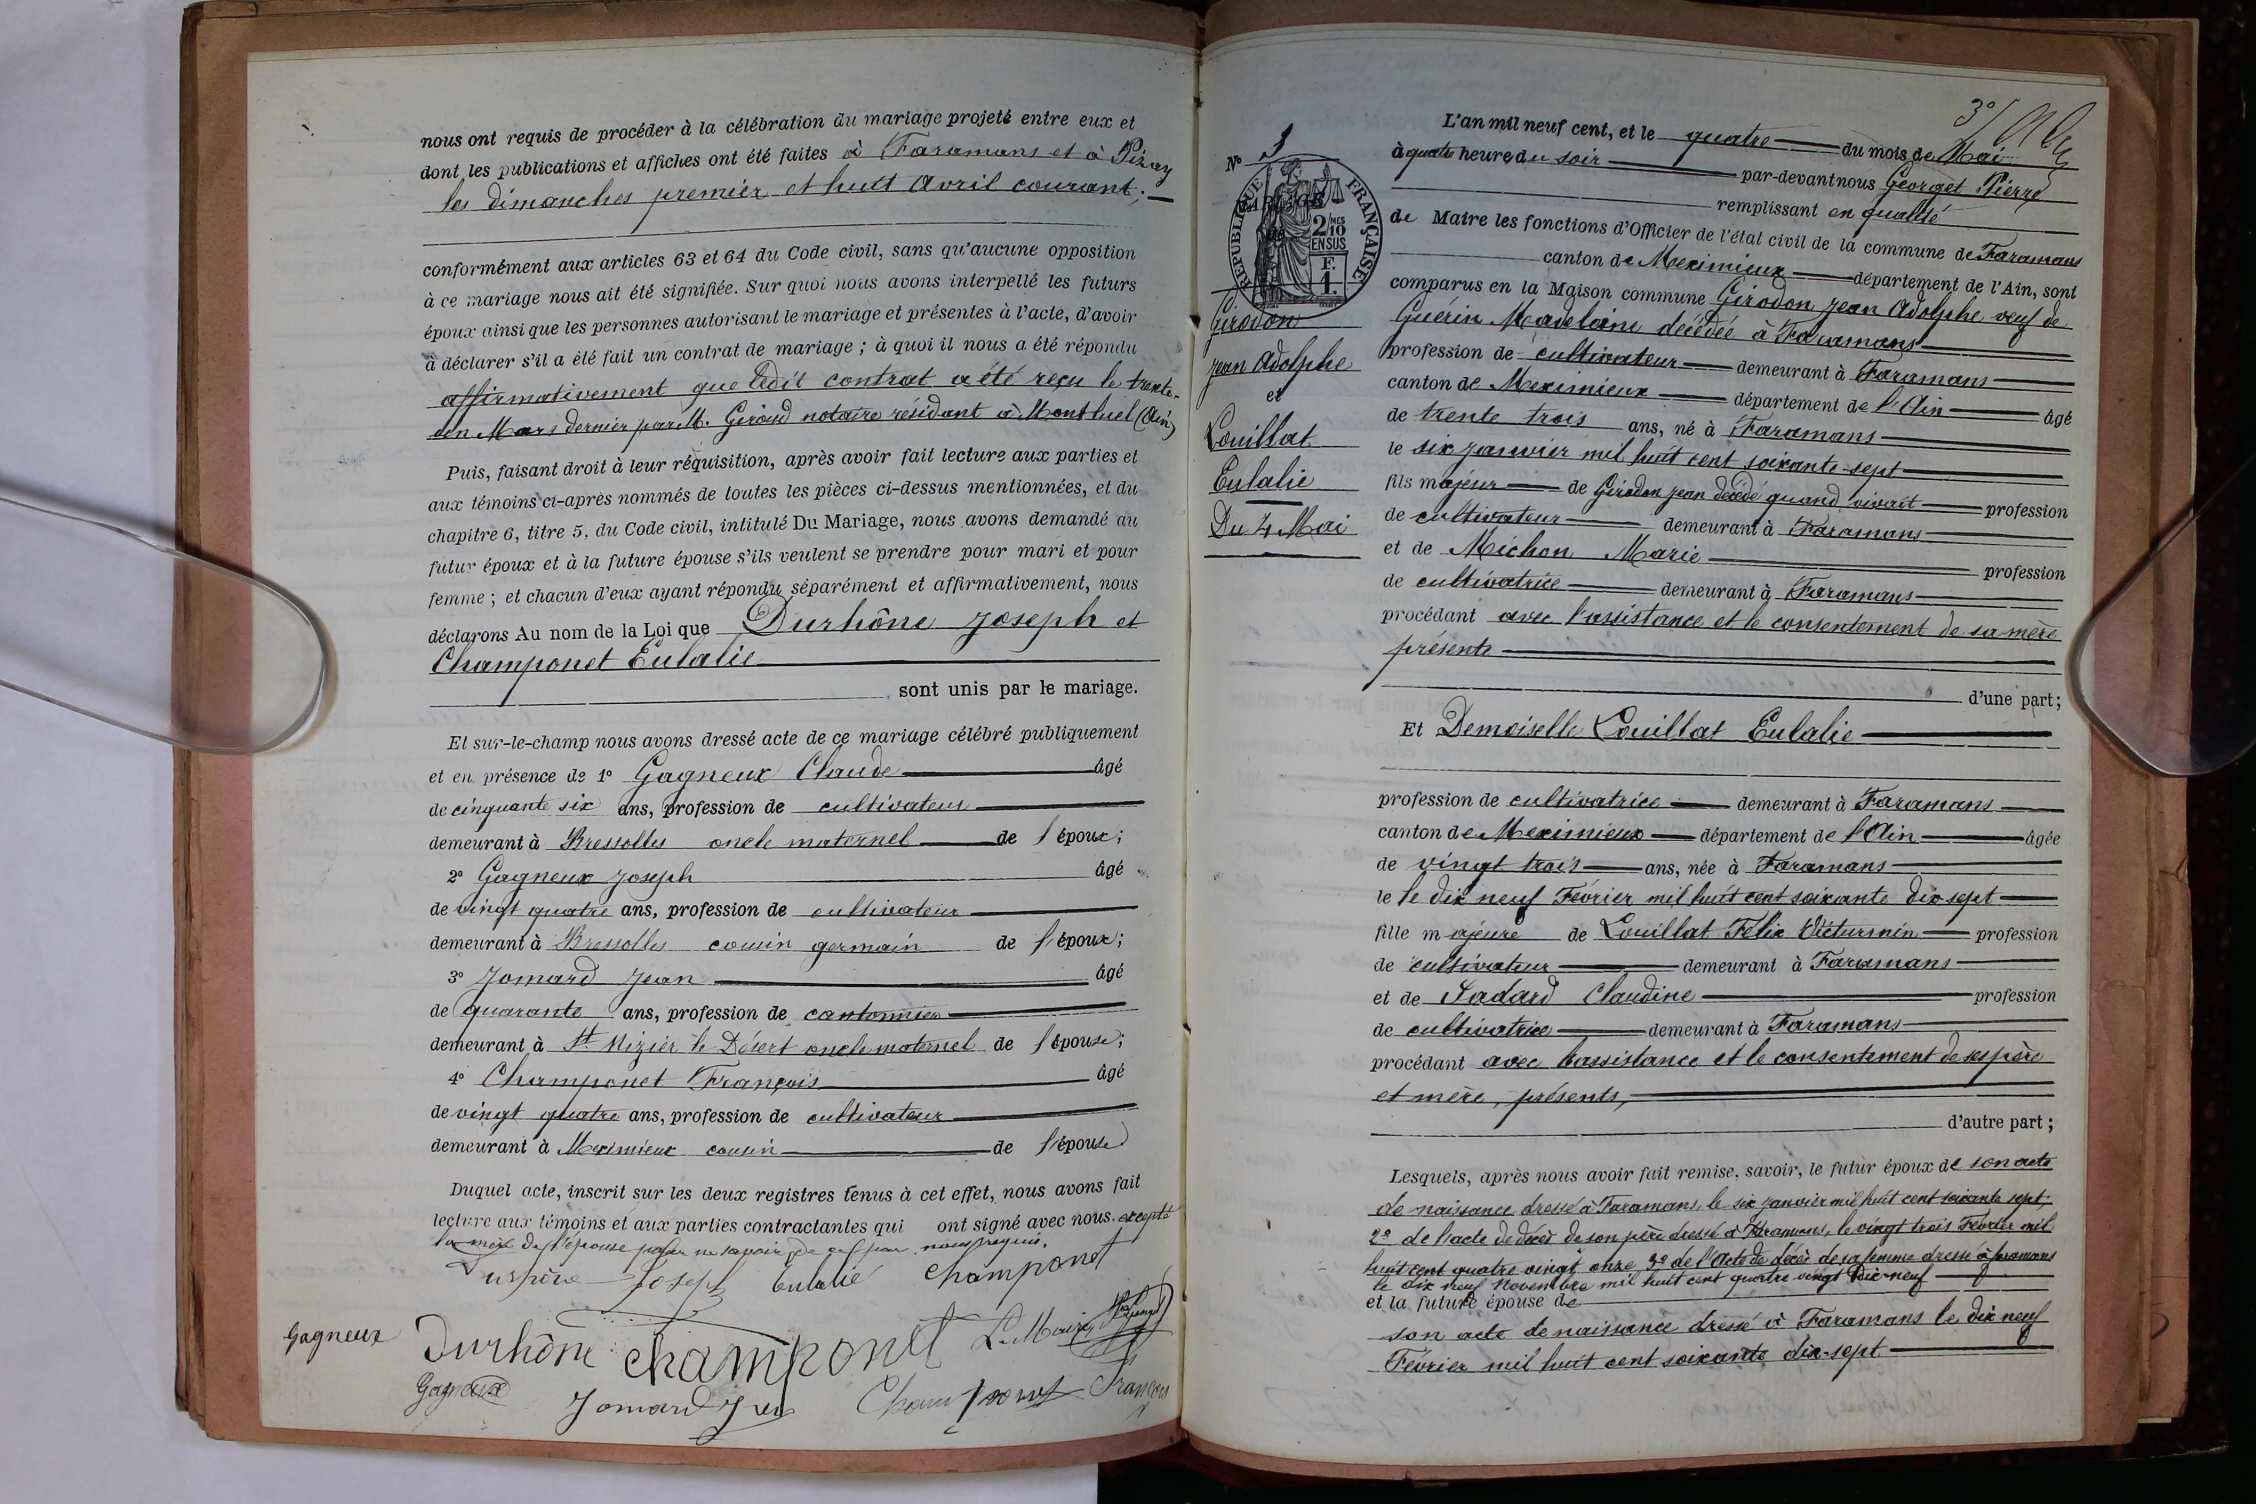 nous ont requis de procéder à la célébration du mariage projeté entre eux et
dont les publications et affiches ont été faites à Faramans et à Pizay
les dimanches premier et huit Avril courant;
conformément aux articles 63 et 64 du Code civil, sans qu'aucune opposition
à ce mariage nous ait été signifiée. Sur quoi nous avons interpellé les futurs
époux ainsi que les personnes autorisant le mariage et présentes à l'acte, d'avoir
à déclarer s'il a été fait un contrat de mariage ; à quoi il nous a été répondu
affirmativement que ledit contrat a été reçu le trente-
un Mars dernier par M. Giroud notaire résidant à Montluel (Ain)
Puis, faisant droit à leur réquisition, après avoir fait lecture aux parties et
aux témoins ci-après nommés de toutes les pièces ci-dessus mentionnées, et du
chapitre 6, titre 5. du Code civil, intitulé Du Mariage, nous avons demandé au
futur époux et à la future épouse s'ils veulent se prendre pour mari et pour
femme ; et chacun d'eux ayant répondu séparément et affirmativement, nous
déclarons Au nom de la Loi que Durhône Joseph et
Champonet Eulalie
sont unis par le mariage.
Et sur-le-champ nous avons dressé acte de ce mariage célébré publiquement
et en présence de 1° Gagneux Claude âgé
de cinquante six ans, profession de cultivateur
demeurant à Bressolles oncle maternel de l'époux;
2° Gagneux Joseph âgé
de vingt quatre ans, profession de cultivateur
demeurant à Bressolles cousin germain de l'époux;
3° Jomard Jean âgé
de quarante ans, profession de cantonnier
demeurant à St Nizier le Désert oncle maternel de l'épouse;
4° Champonet François âgé
de vingt quatre ans, profession de cultivateur
demeurant à Meximieux cousin de l'épouse
Duquel acte, inscrit sur les deux registres tenus à cet effet, nous avons fait
lecture aux témoins et aux parties contractantes qui ont signé avec nous excepté
la mère de l'épouse pour ne savoir de ce par nous requis.
Durhône Joseph Eulalie Champonet
Gagneux Durhône Champonet Le Maire
Gagneux Jomard Jean Champonet François
3°
N° 3
RÉPUBLIQUE FRANÇAISE
2/10 MES
EN SUS
F. 1.
Girodon
Jean Adolphe
et
Louillat
Eulalie
Du 4 Mai
L'an mil neuf cent, et le quatre du mois de Mai
à quatre heure du soir par-devant nous Georget Pierre
remplissant en qualité
de Maire les fonctions d'Officier de l'état civil de la commune de Faramans
canton de Meximieux département de l'Ain, sont
comparus en la Maison commune Girodon Jean Adolphe veuf de
Guérin Madelaine décédée à Faramans
profession de cultivateur demeurant à Faramans
canton de Meximieux département de l'Ain âgé
de trente trois ans, né à Faramans
le six janvier mil huit cent soixante-sept
fils majeur de Girodon Jean décédé quand vivait profession
de cultivateur demeurant à Faramans
et de Michon Marie profession
de cultivatrice demeurant à Faramans
procédant avec l'assistance et le consentement de sa mère
présente
d'une part;
Et Demoiselle Louillat Eulalie
profession de cultivatrice demeurant à Faramans
canton de Meximieux département de l'Ain âgée
de vingt trois ans, née à Faramans
le le dix neuf Février mil huit cent soixante dix sept
fille majeure de Louillat Félix Victurnin profession
de cultivateur demeurant à Faramans
et de Jadard Claudine profession
de cultivatrice demeurant à Faramans
procédant avec l'assistance et le consentement de ses père
et mère, présents,
d'autre part ;
Lesquels, après nous avoir fait remise, savoir, le futur époux de son acte
de naissance dressé à Faramans, le six janvier mil huit cent soixante sept;
2° de l'acte de décès de son père dressé à Faramans, le vingt trois Février mil
huit cent quatre vingt onze 3° de l'Acte de décès de sa femme dressé à faramans
le dix neuf Novembre mil huit cent quatre vingt dix-neuf
et la future épouse de
son acte de naissance dressé à Faramans le dix neuf
Février mil huit cent soixante dix-sept